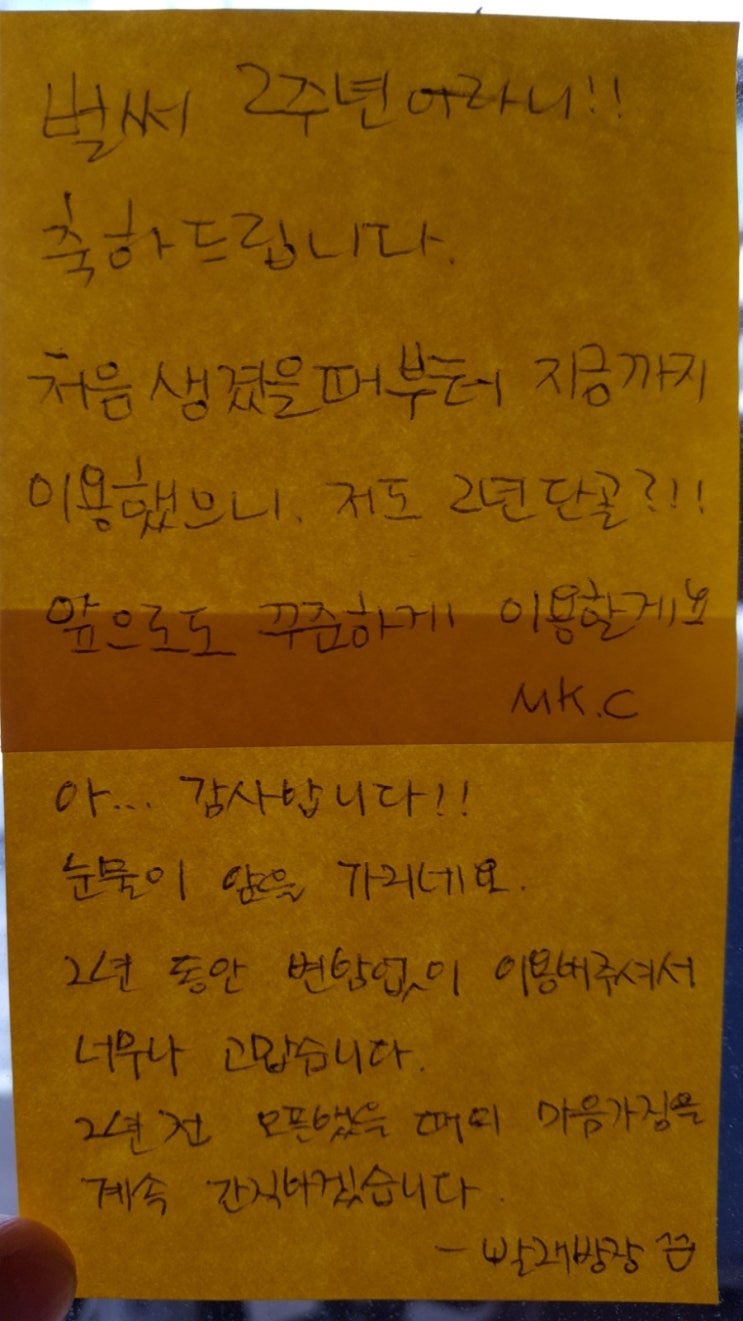 벌써 2주년이라니!!
축하드립니다.
처음 생겼을때부터 지금까지
이용했으니. 저도 2년단골?!!
앞으로도 꾸준하게 이용할게요
MK.C
아... 감사합니다!!
눈물이 앞을 가리네요.
2년 동안 변함없이 이용해주셔서
너무나 고맙습니다.
2년 전 오픈했을 때의 마음가짐을
계속 간직하겠습니다.
- 빨래방장